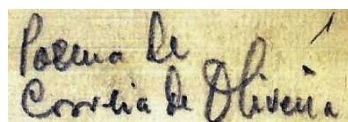 Poema de
Correia de Oliveira